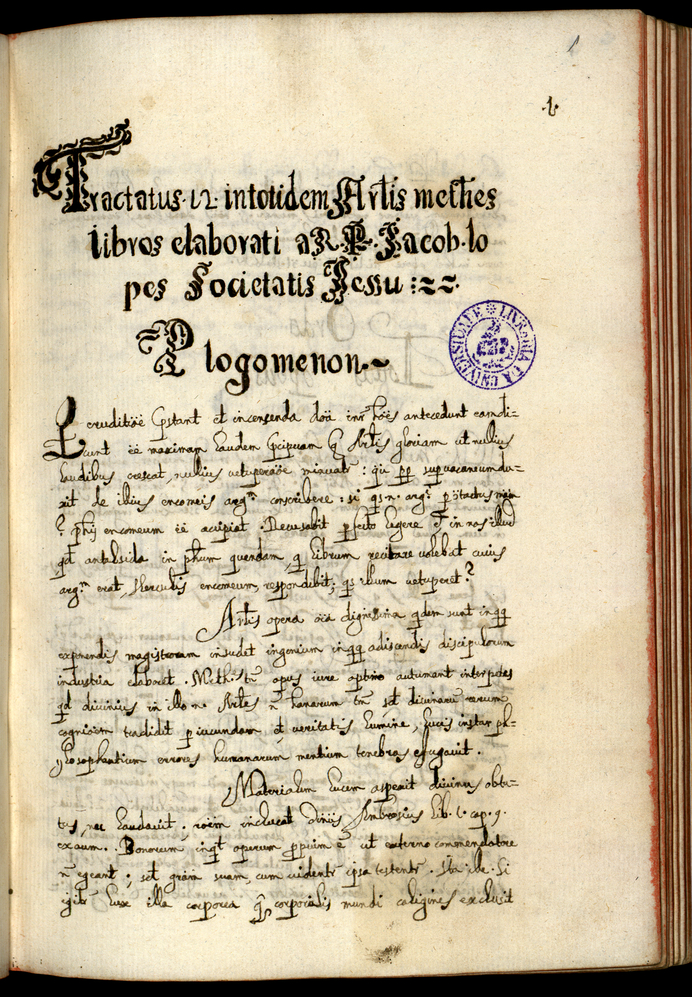 1
1.
Tractatus. 12. in totidem Artis methes
libros elaborati a R. P. Jacob. lo
pes Societatis Jessu
Plogomenon.~
LIVRARIA DA UNIVERSIDADE
eruditiõe Cpstant et incensenda antecedunt eamdi=
cunt eẽ maximam Laudem Artis gloriam ut nullius
Laudibus crescat, nullius uetuperãõe minuatr : supuacaneum du=
xit de illius encomeis argm conscribere : si
encomeum eẽ acipiat. Recusabit pfecto Legere in nos illud
qd antalsida in quendam, q Librum recitare volebat cuius
argm erat, Herculis encomeum, respondibit; qs illum uetuperet?
Artis opera oĩa dignissima qdem sunt in qq
exponendis magistrorum insudet ingenium in qq adiscendis discipulorum
industria elaboret. opus iure optimo autumant interpetes
qd divinius in illo n. Artes ñ humanarum tm sed divinarũ rerum
cognicõem tradidit p iucundam et veritatis Lumine, Lucis instar ph=
ylosophantium errores humanarum mentium tenebras effugavit.
Materialem Lucem asperit divinus obtu=
tus, nec Laudavit; inclucat Ambrosius Lib. 1. cap. 9.
exaum.. Bonorum inqt operum ppuim e ut externo commendatore
ñ egeant; set grãm suam, cum uidentr ipsa testentr. Ita ille. Si
igitr Lux illa corporea corporalis mundi caligines exclusit